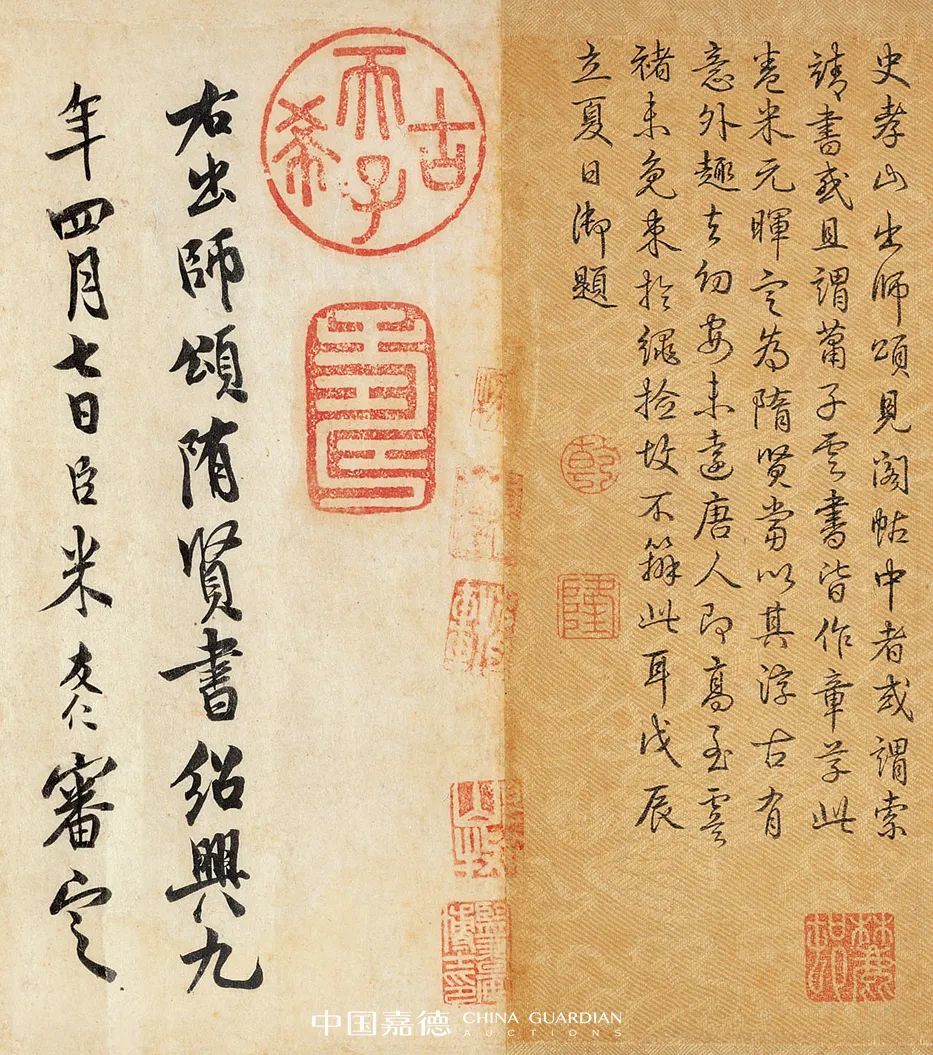 史孝山出師頌見閣帖中者或謂索
靖書或且謂蕭子雲書皆作章草此
卷米元暉定為隋賢當以其淳古有
意外趣去幼安未遠唐人即高至虞
褚未免束於繩撿故不辦此耳戊辰
立夏日御題
乾
隆
古希天子
壽
右出師頌隋賢書紹興九
年四月七日臣米友仁審定
中国嘉德 CHINA GUARDIAN
AUCTIONS